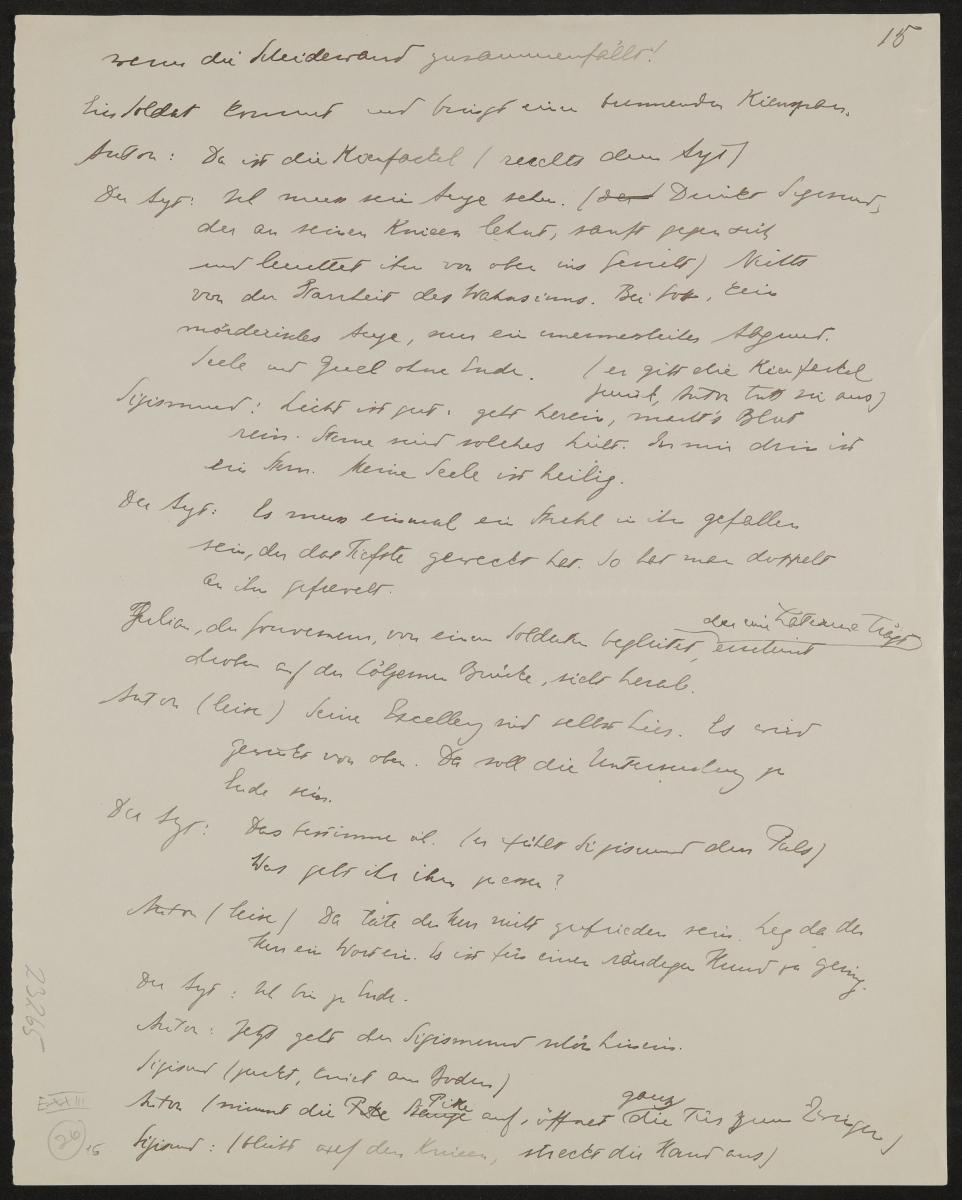 15
wenn die Scheidewand zusammenfällt!
Ein Soldat kommt und bringt einen brennenden Kienspan.
Anton: Da ist die Kienfackel (reicht's dem Arzt)
Der Arzt: Ich muss sein Auge sehen. (Drückt Sigismund,
der an seinen Knieen lehnt, sanft gegen sich
und leuchtet ihm von oben ins Gesicht) Nichts
von der Starrheit des Wahnsinns. Bei Gott, kein
mörderisches Auge, nur ein unermessliches Abgrund.
Seele und Qual ohne Ende. (er gibt die Kienfackel
zurück, Anton tritt sie aus)
Sigismund: Licht ist gut. geht herein, macht's Blut
rein. Sterne sind solches Licht. In mir drin ist
ein Stern. Meine Seele ist heilig.
Der Arzt: Es muss einmal ein Strahl in ihn gefallen
sein, der das Tiefste geweckt hat. So hat man doppelt
an ihm gefrevelt.
Julian, der Gouverneur, von einem Soldaten begleitet, der eine Laterne trägt, erscheint
droben auf der hölzernen Brücke, sieht herab.
Anton (leise) Seine Excellenz sind selbst hier. Es wird
gewinkt von oben. Da soll die Untersuchung zu
Ende sein.
Der Arzt: Das bestimme ich. (er fühlt Sigismund den Puls)
Was gebt ihr ihm zu essen?
Anton (leise) Da täte der Herr nicht zufrieden sein. Leg da der
Herr ein Wort ein. Es ist für einen räudigen Hund zu gering.
Der Arzt: Ich bin zu Ende.
Anton: Jetzt geht der Sigismund schön hinein.
Sigismund (zuckt, kniet am Boden)
Anton (nimmt die Pike auf, öffnet ganz die Tür zum Zwinger)
Sigismund: (bleibt auf den Knieen, streckt die Hand aus)
23265
E III
26
15